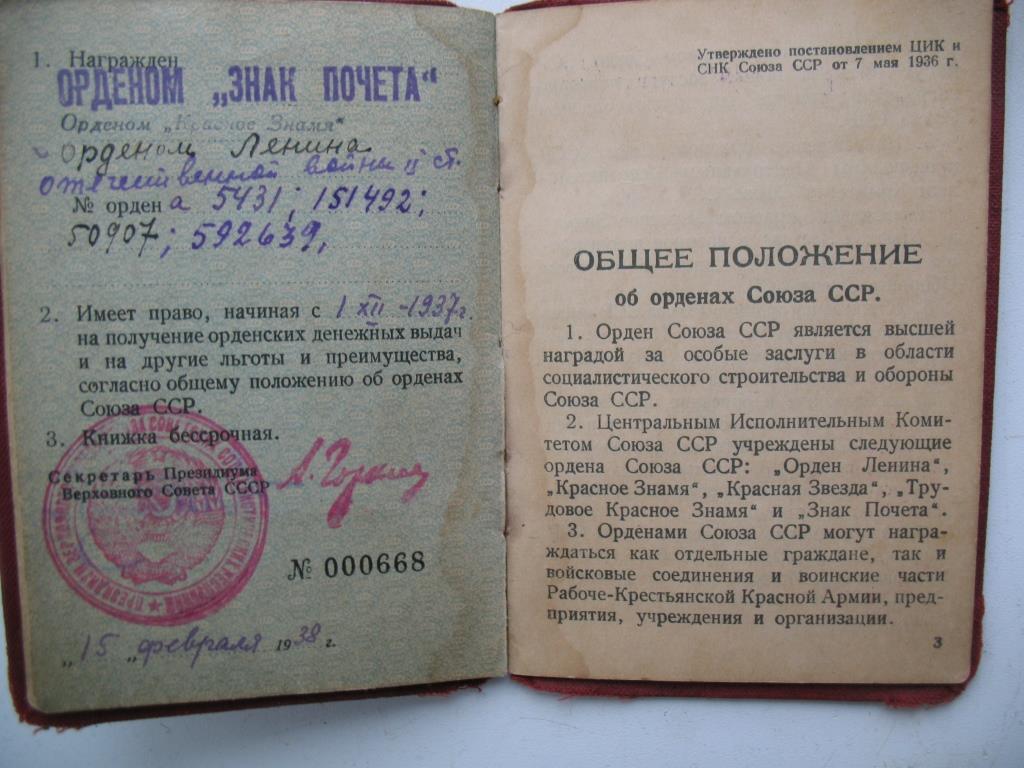 1. Награжден
ОРДЕНОМ „ЗНАК ПОЧЕТА“
Орденом „Красное Знамя“
орденом Ленина
отечественной войны II ст.
№ орден а 5431; 151492;
50907; 592639,
2. Имеет право, начиная с 1 XII - 1937 г.
на получение орденских денежных выдач
и на другие льготы и преимущества,
согласно общему положению об орденах
Союза ССР.
3. Книжка бессрочная.
Секретарь Президиума
Верховного Совета СССР
А. Горкин
№ 000668
„15 „ февраля 1938 г.
Утверждено постановлением ЦИК и
СНК Союза ССР от 7 мая 1936 г.
ОБЩЕЕ ПОЛОЖЕНИЕ
об орденах Союза ССР.
1. Орден Союза ССР является высшей
наградой за особые заслуги в области
социалистического строительства и обороны
Союза ССР.
2. Центральным Исполнительным Коми-
тетом Союза ССР учреждены следующие
ордена Союза ССР: „Орден Ленина“,
„Красное Знамя“, „Красная Звезда“, „Тру-
довое Красное Знамя“ и „Знак Почета“.
3. Орденами Союза ССР могут награ-
ждаться как отдельные граждане, так и
войсковые соединения и воинские части
Рабоче-Крестьянской Красной Армии, пред-
приятия, учреждения и организации.
3